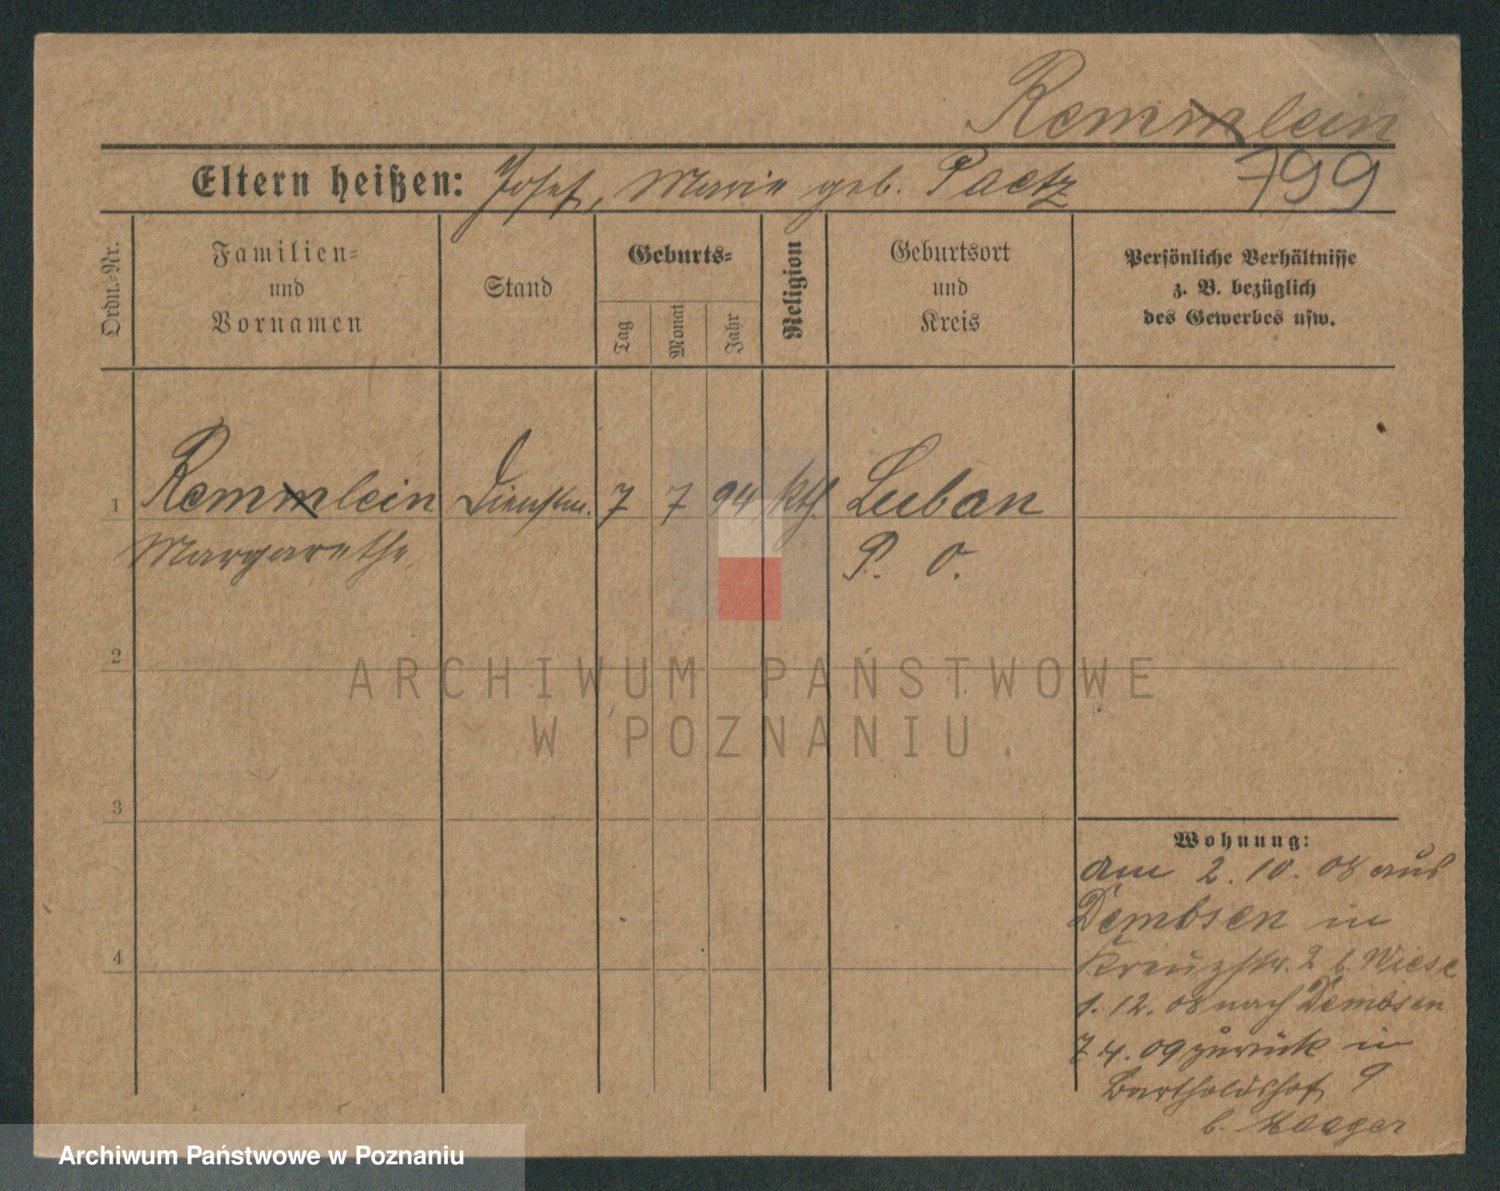 Remmlein
799
Eltern heißen: Josef, Marie geb. Paetz
Ordn.-Nr.
Familien-
und
Vornamen
Stand
Geburts-
Tag
Monat
Jahr
Religion
Geburtsort
und
Kreis
Persönliche Verhältnisse
z. B. bezüglich
des Gewerbes usw.
1 Remmlein Dienstm. 7 7 94 kth. Luban
Margarethe P. O.
2
ARCHIWUM PAŃSTWOWE
W POZNANIU.
3
4
Wohnung:
am 2. 10. 08 aus
Dembsen in
Kreuzstr. 2 b. Wiese
1. 12. 08 nach Dembsen
7 4. 09 zurück in
Bartholdshof 9
b.
Archiwum Państwowe w Poznaniu